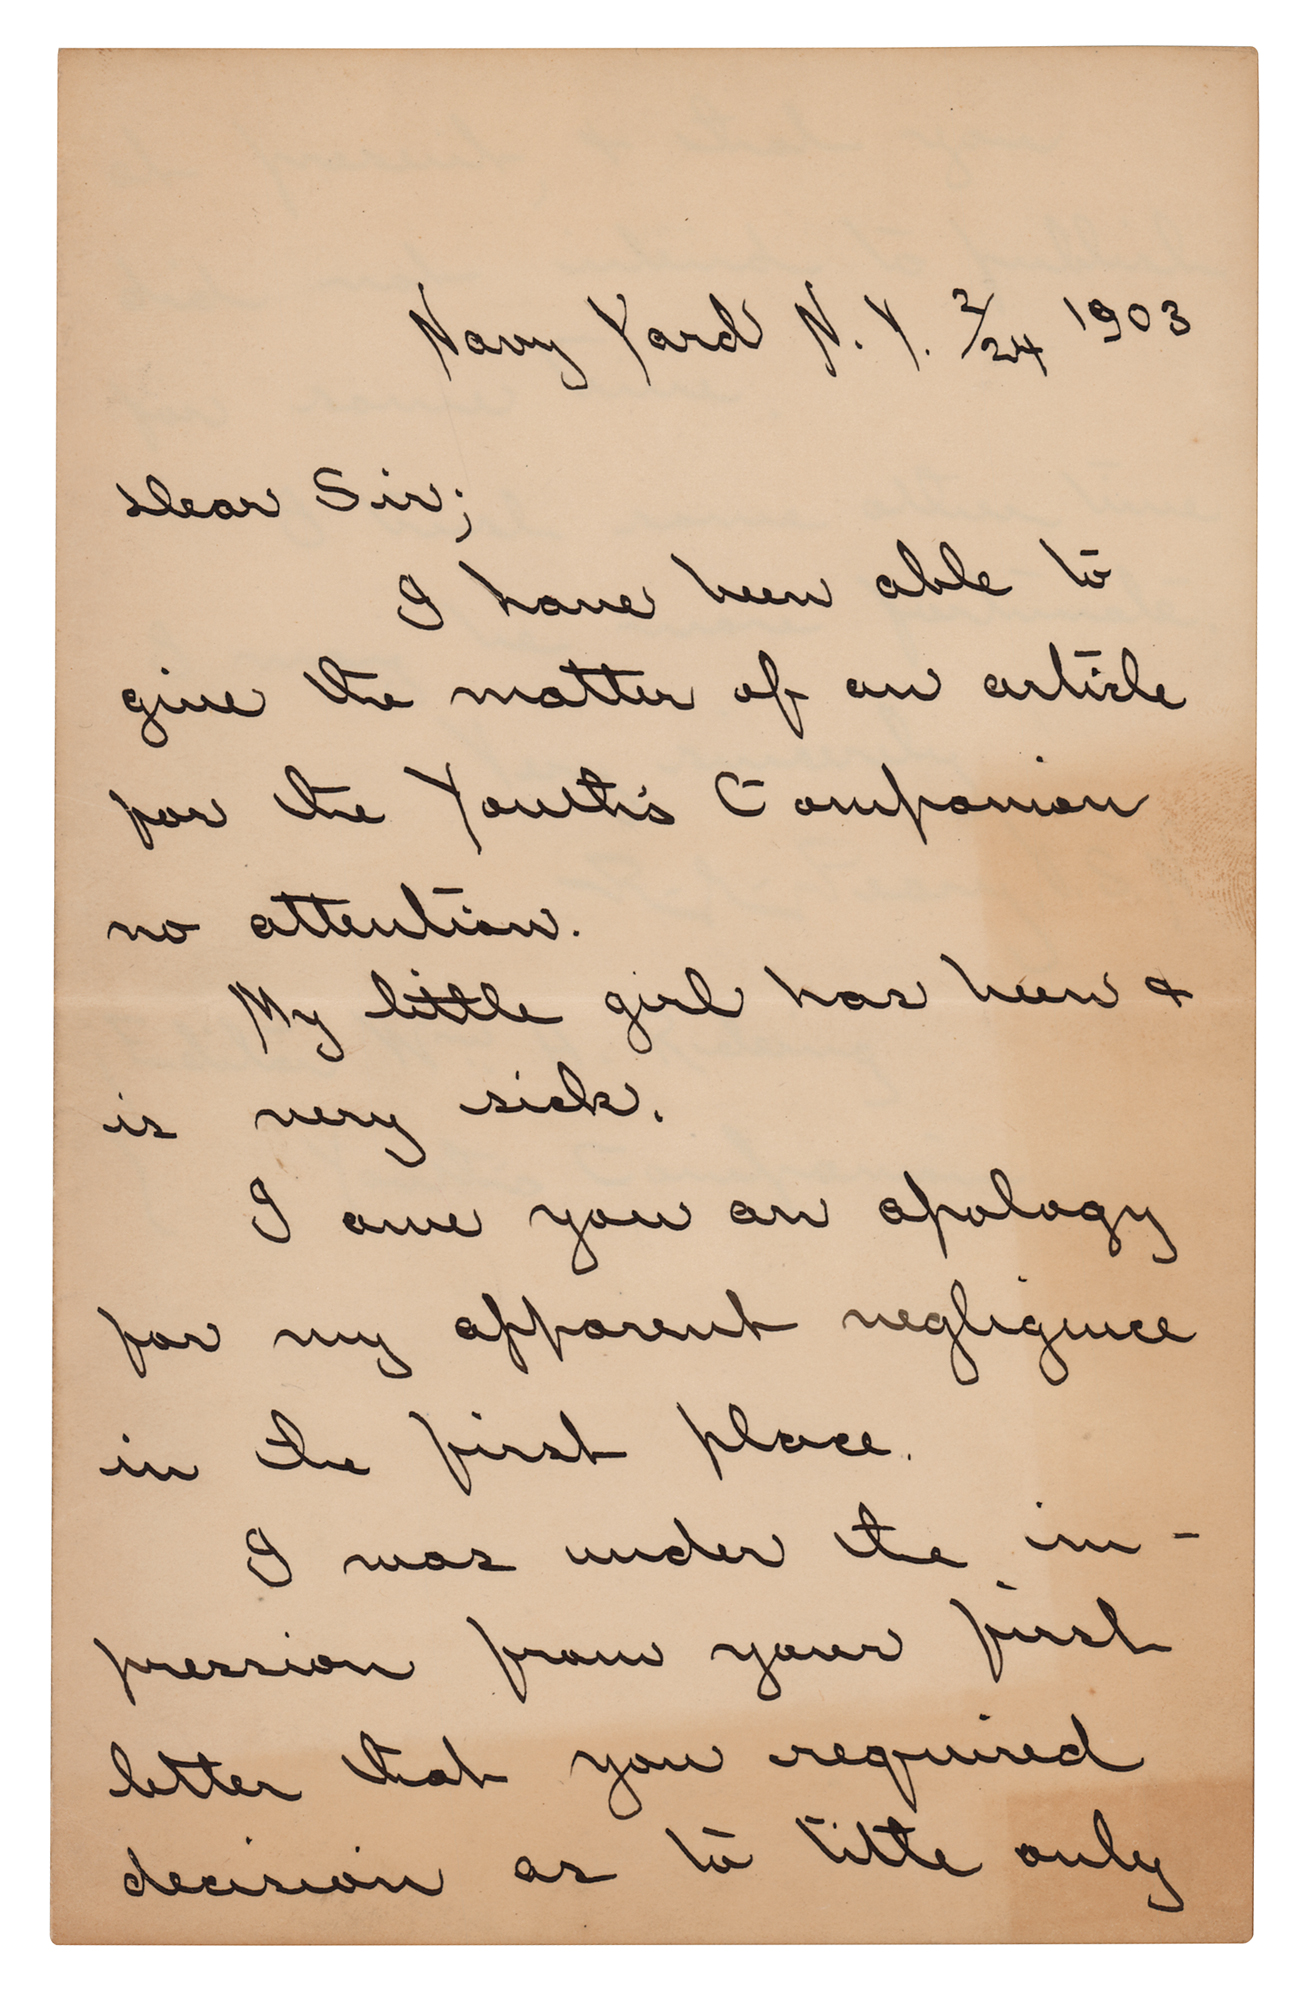 Navy Yard N. Y. 2/24 1903
Dear Sir;
I have been able to
give the matter of an article
for the Youth's Companion
no attention.
My little girl has been &
is very sick.
I owe you an apology
for my apparent negligence
in the first place.
I was under the im-
pression from your first
letter that you required
decision as to title only